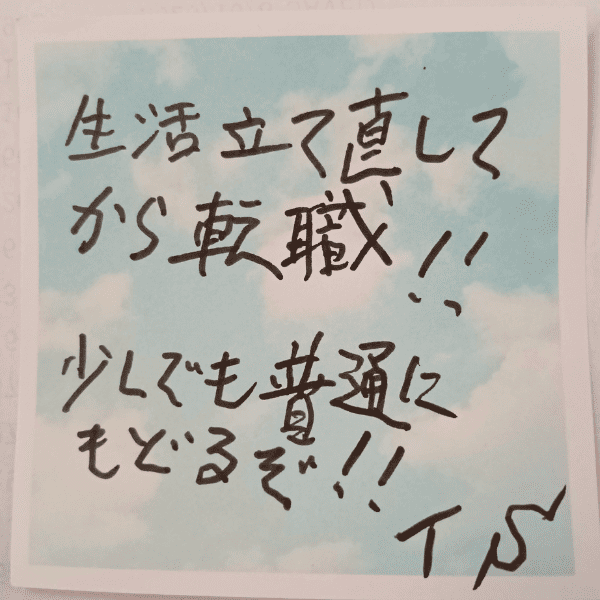 生活立て直して
から転職!!
少しでも普通に
もどるぞ!!
T S